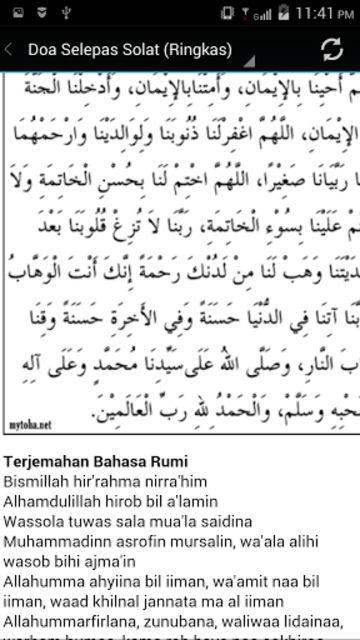 11:41 PM
Doa Selepas Solat (Ringkas)
أَحْيِنَا بِالإِيْمَانِ، وَأَمِتْنَابِالإِيْمَانِ، وَأَدْخِلْنَا الْجَنَّةَ
الإِيْمَانِ، اللَّهُمَّ اغْفِرْلَنَا ذُنُوبَنَا وَلِوَالِدَيْنَا وَارْحَمْهُمَا
رَبَّيَانَا صَغِيْرًا، اللَّهُمَّ اخْتِمْ لَنَا بِحُسْنِ الْخَاتِمَةِ وَلَا
عَلَيْنَا بِسُوْءِ الْخَاتِمَةِ، رَبَّنَا لَا تُزِغْ قُلُوبَنَا بَعْدَ
وَهَبْ لَنَا مِنْ لَدُنْكَ رَحْمَةً إِنَّكَ أَنْتَ الْوَهَّابُ
آتِنَا فِي الدُّنْيَا حَسَنَةً وَفِي الآخِرَةِ حَسَنَةً وَقِنَا
النَّارِ، وَصَلَّى اللهُ عَلَى سَيِّدِنَا مُحَمَّدٍ وَعَلَى آلِهِ
وَسَلَّمْ، وَالْحَمْدُ لِلهِ رَبِّ الْعَالَمِيْنَ.
mytoha.net
Terjemahan Bahasa Rumi
Bismillah hir'rahma nirra'him
Alhamdulillah hirob bil a'lamin
Wassola tuwas sala mua'la saidina
Muhammadinn asrofin mursalin, wa'ala alihi
wasob bihi ajma'in
Allahumma ahyiina bil iiman, wa'amit naa bil
iiman, waad khilnal jannata ma al iiman
Allahummarfirlana, zunubana, waliwaa lidainaa,